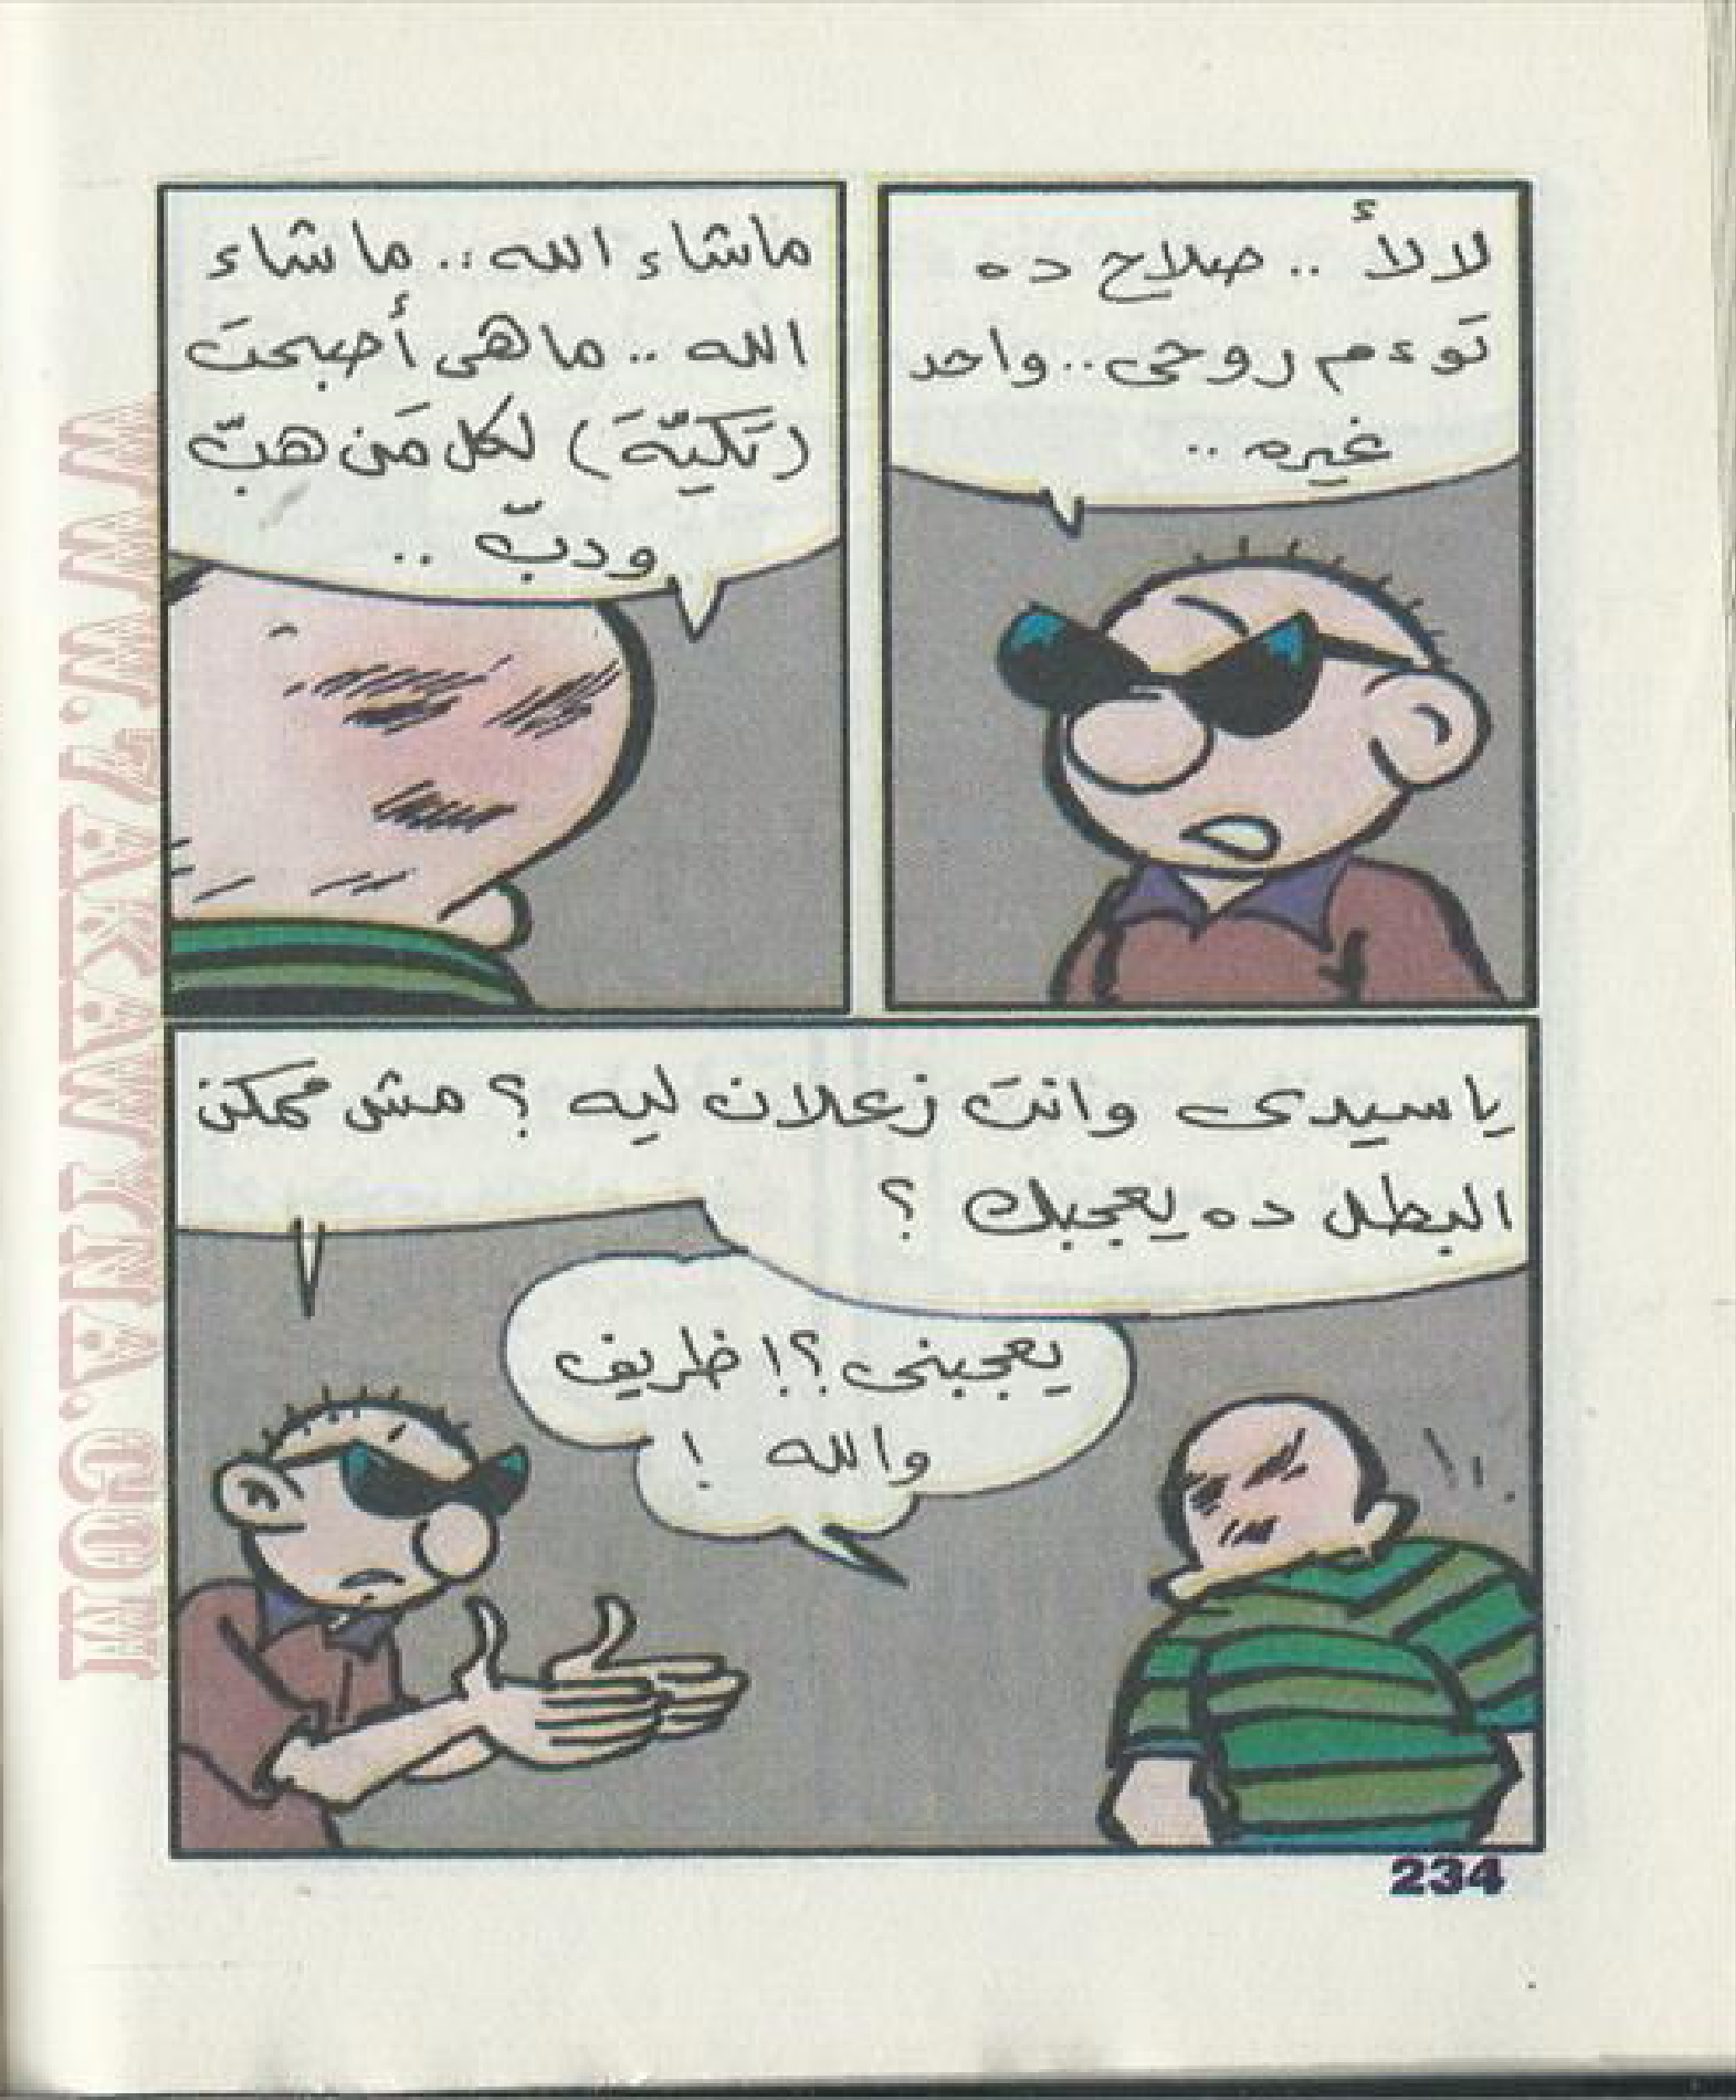 لا لأ .. صلاح ده
تَوءم روحى .. واحد
غيره ..
ماشاء الله .. ما شاء
الله .. ما هى أصبحتَ
(تَكيّةَ) لكل مَن هبّ
ودبّ ..
يا سيدى وانتَ زعلان ليه ؟ مش ممكن
البطل ده يعجبك ؟
يعجبنى ؟! ظريف
والله !
234
WWW.7AKAWTNA.COM